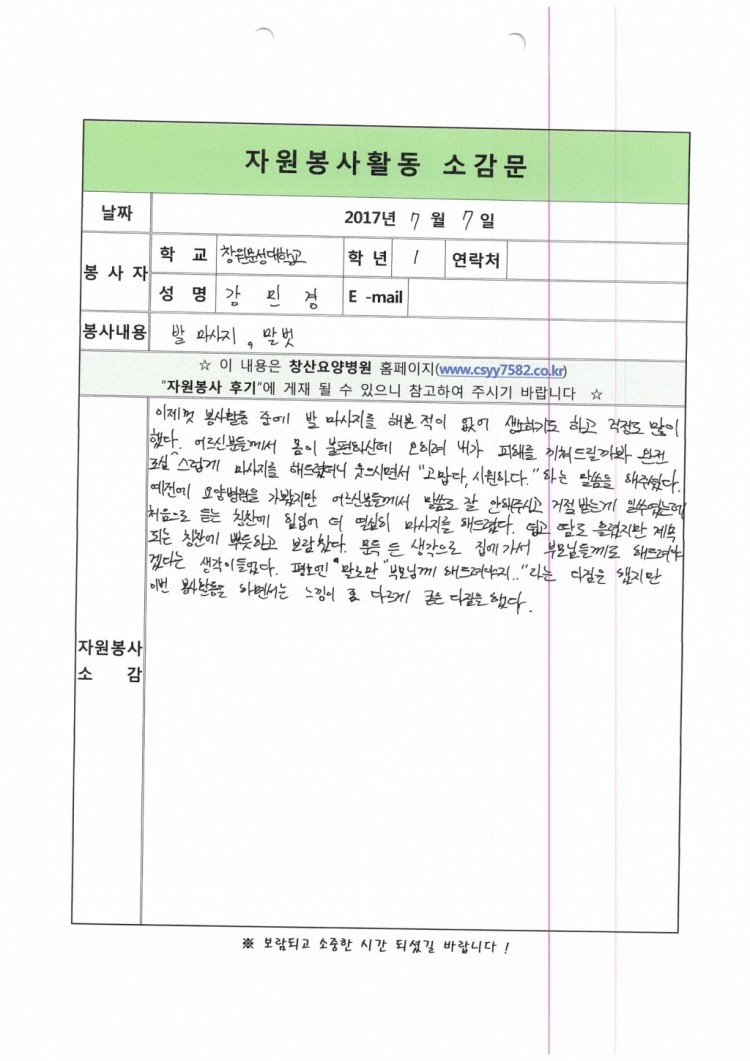 자원봉사활동 소감문
날짜 2017년 7 월 7 일
봉 사 자
학 교 창원문성대학교 학 년 1 연락처
성 명 감 민 경 E -mail
봉사내용 발 마사지, 말벗
☆ 이 내용은 창산요양병원 홈페이지(www.csyy7582.co.kr)
"자원봉사 후기"에 게재 될 수 있으니 참고하여 주시기 바랍니다 ☆
이제껏 봉사활동 중에 발 마사지를 해본 적이 없어 생소하기도 하고 걱정도 많이
했다. 어르신분들께서 몸이 불편하신데 오히려 내가 피해를 끼쳐드릴까봐 완전
조심스럽게 마사지를 해드렸더니 웃으시면서 "고맙다, 시원하다." 하는 말씀을 해주셨다.
예전에 요양병원을 가봤지만 어르신분들께서 말씀도 잘 안해주시고 거절받는게 일쑤였는데
처음으로 듣는 칭찬에 힘입어 더 열심히 마사지를 해드렸다. 덥고 땀도 흘렸지만 계속
되는 칭찬에 뿌듯하고 보람찼다. 문득 든 생각으로 집에가서 부모님들께도 해드려야
겠다는 생각이들었다. 평소엔 "말로만 "부모님께 해드려야지.." 라는 다짐을 했지만
이번 봉사활동을 하면서는 느낌이 다르게 굳은 다짐을 했다.
자원봉사
소 감
※ 보람되고 소중한 시간 되셨길 바랍니다 !